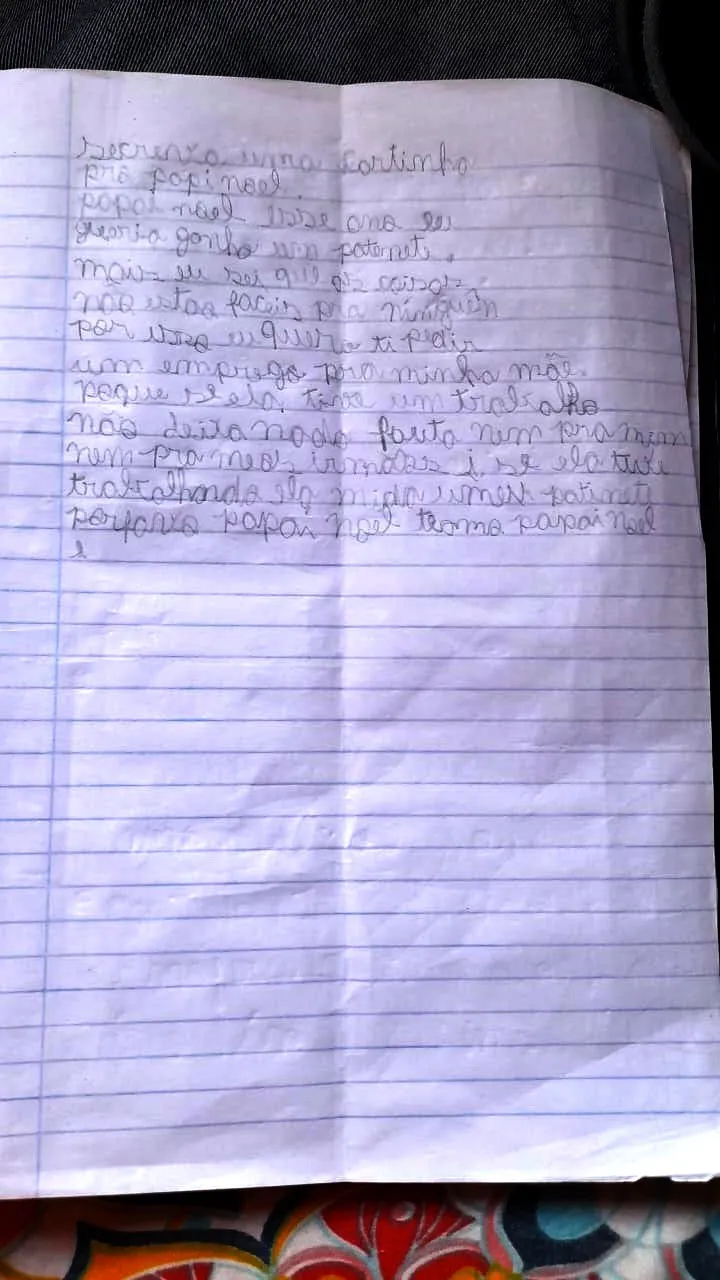 secrenva uma cartinha
pra papi noel
papai noel isse ano eu
queria ganha um patenete.
mais eu sei que as coisas
não estão faceis pra ninguên
por isso eu quero ti pedir
um emprego pra minha mãe.
poque se ela tive um trabalho
não deixa nada fauta nem pra mim
nem pra meos irmãos i se ela tive
trabalhando ela mida umes patineti
porfavo papai noel teamo papai noel